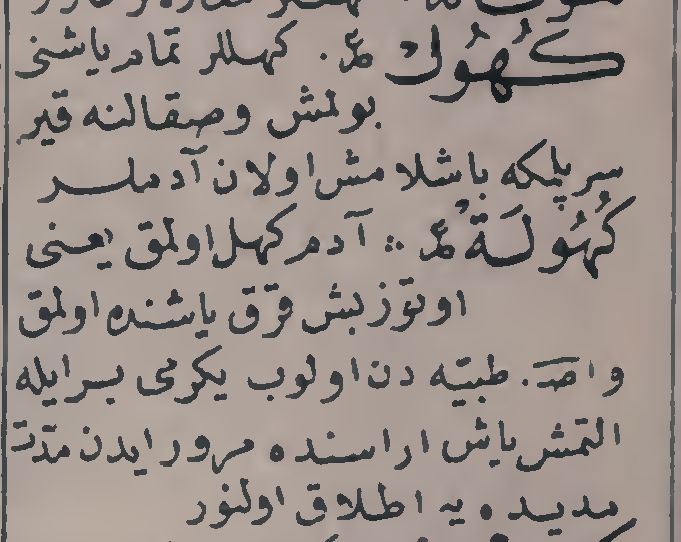 كُهُولٌ عم . كهللر تمام ياشنى
بولمش وصقالنه قير
سرپلمكه باشلامش اولان آدملر
كُهُولَةٌ عم ∴ آدم كهل اولمق يعنى
اوتوز بش قرق ياشنده اولمق
واصـ . طبيّه دن اولوب يكرمى بر ايله
التمش ياش اراسنده مرور ايدن مدّت
مديده يه اطلاق اولنور